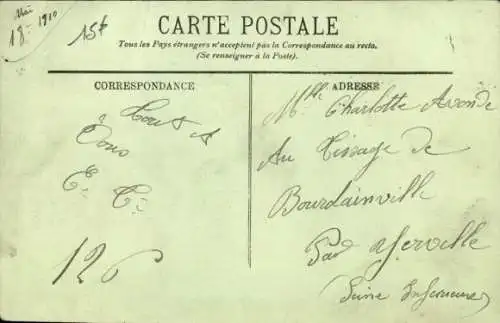 Mai
18 1910
15f
CARTE POSTALE
Tous les Pays étrangers n'acceptent pas la Correspondance au recto.
(Se renseigner à la Poste).
CORRESPONDANCE
ADRESSE
Tout à
Vous
E. C.
126
Mlle Charlotte Avonde
Au Tissage de
Bourdainville
Par Yerville
(Seine Inférieure)